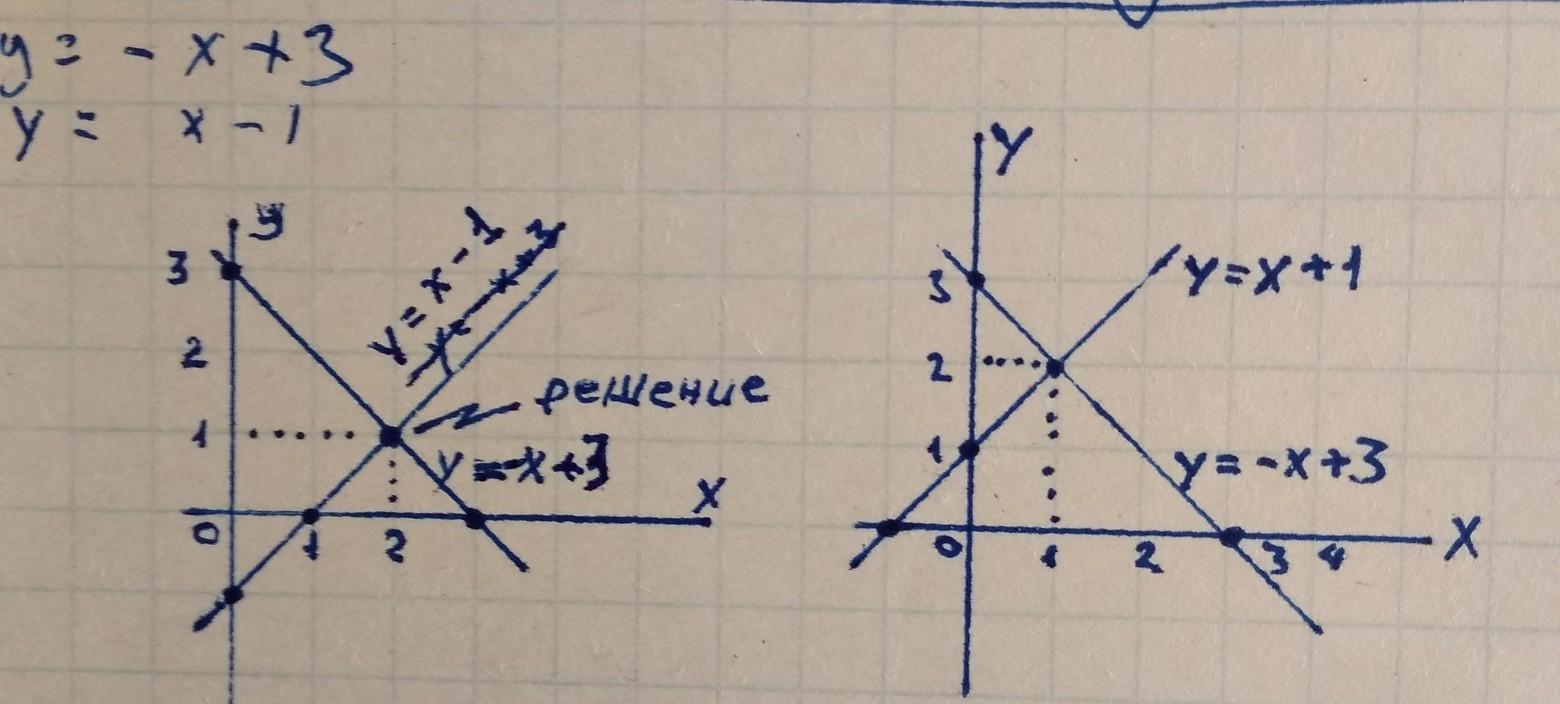 y = - x + 3
y = x - 1
y
3
y = x - 1
2
решение
1
y = -x + 3
x
0
1
2
y
3
y = x + 1
2
1
y = -x + 3
0
1
2
3
4
x